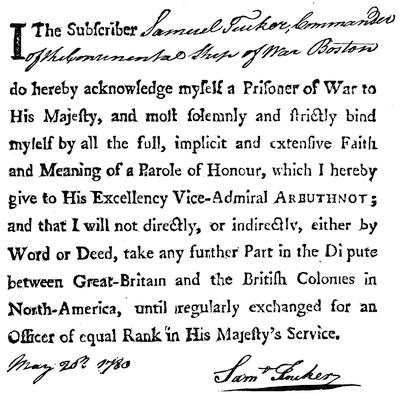 I The Subſcriber Samuel Tucker, Commander
of the Continental Ship of War Boston
do hereby acknowledge myſelf a Priſoner of War to
His Majeſty, and moſt ſolemnly and ſtrictly bind
myſelf by all the full, implicit and extenſive Faith
and Meaning of a Parole of Honour, which I hereby
give to His Excellency Vice-Admiral ARBUTHNOT;
and that I will not directly, or indirectly, either by
Word or Deed, take any further Part in the Di pute
between Great-Britain and the Britiſh Colonies in
North-America, until regularly exchanged for an
Officer of equal Rank in His Majeſty's Service.
May 20th. 1780
Saml Tucker